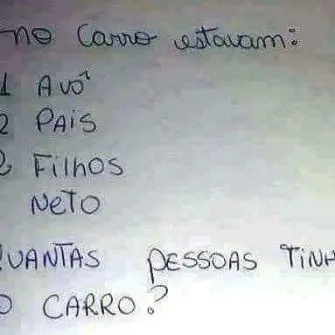 no Carro estavam:
1 AVÔ
2 PAIS
2 Filhos
NETO
QUANTAS PESSOAS TINH
O CARRO?